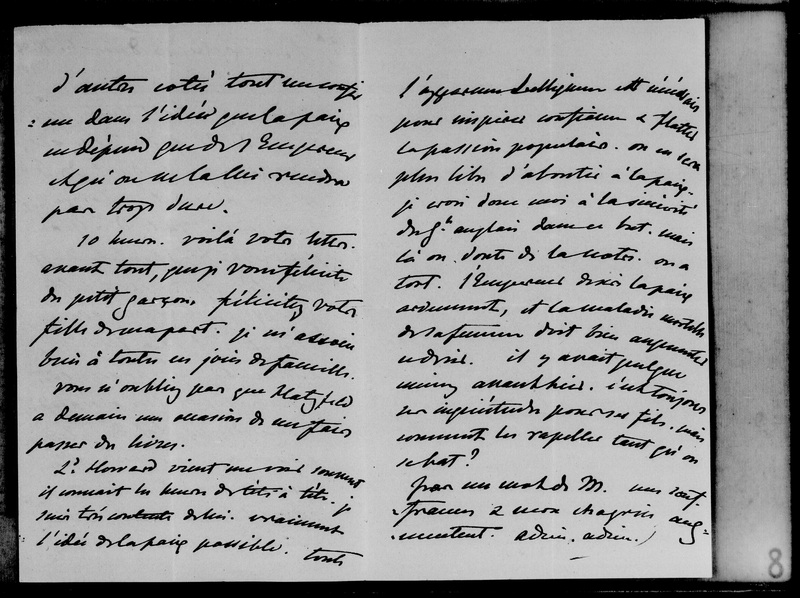 d'autres côtés tout me confir
= me dans l'idée que la paix
ne dépend que de l'Empereur
et qu'on ne la lui rendra
pas trop dure.
10 heures. voilà votre lettre.
avant tout, que je vous félicite
du petit garçon. félicitez votre
fille de ma part. je m'associe
bien à toutes vos joies de famille.
vous n'oubliez pas que Hatzfeld
a demain une occasion de me faire
passer des livres.
Ld Howard vient me voir souvent
il connait les heures de tête à tête. je
suis très contente de lui. vraiment
l'idée de la paix possible. toute
l'apparence belliqueuse est nécessaire
pour inspirer confiance & flatter
la passion populaire. on en sera
plus libre d'aboutir à la paix.
je crois donc moi à la sincérité
du gt anglais dans ce but. mais
là on doute de la notre. on a
tort. l'Empereur désire la paix
ardemment, et la maladie mortelle
de sa femme doit bien augmenter
ce désir. il y avait quelque
mieux avant hier. c'est toujours
ses inquiétudes pour ses fils. mais
comment les rappeler tant qu'on
se bat?
pas un mot de M. mes souf
= frances & mon chagrin aug=
= mentent. adieu. adieu.)
8